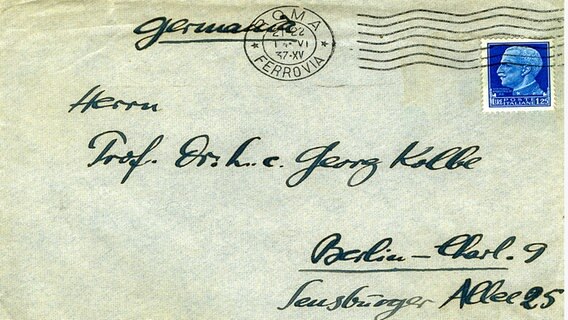 Germania
ROMA
21-22
VI
37-XV
FERROVIA
POSTE
LIRE ITALIANE 1,25
Herrn
Prof. Dr. h. c. Georg Kolbe
Berlin-Charl. 9
Sensburger Allee 25